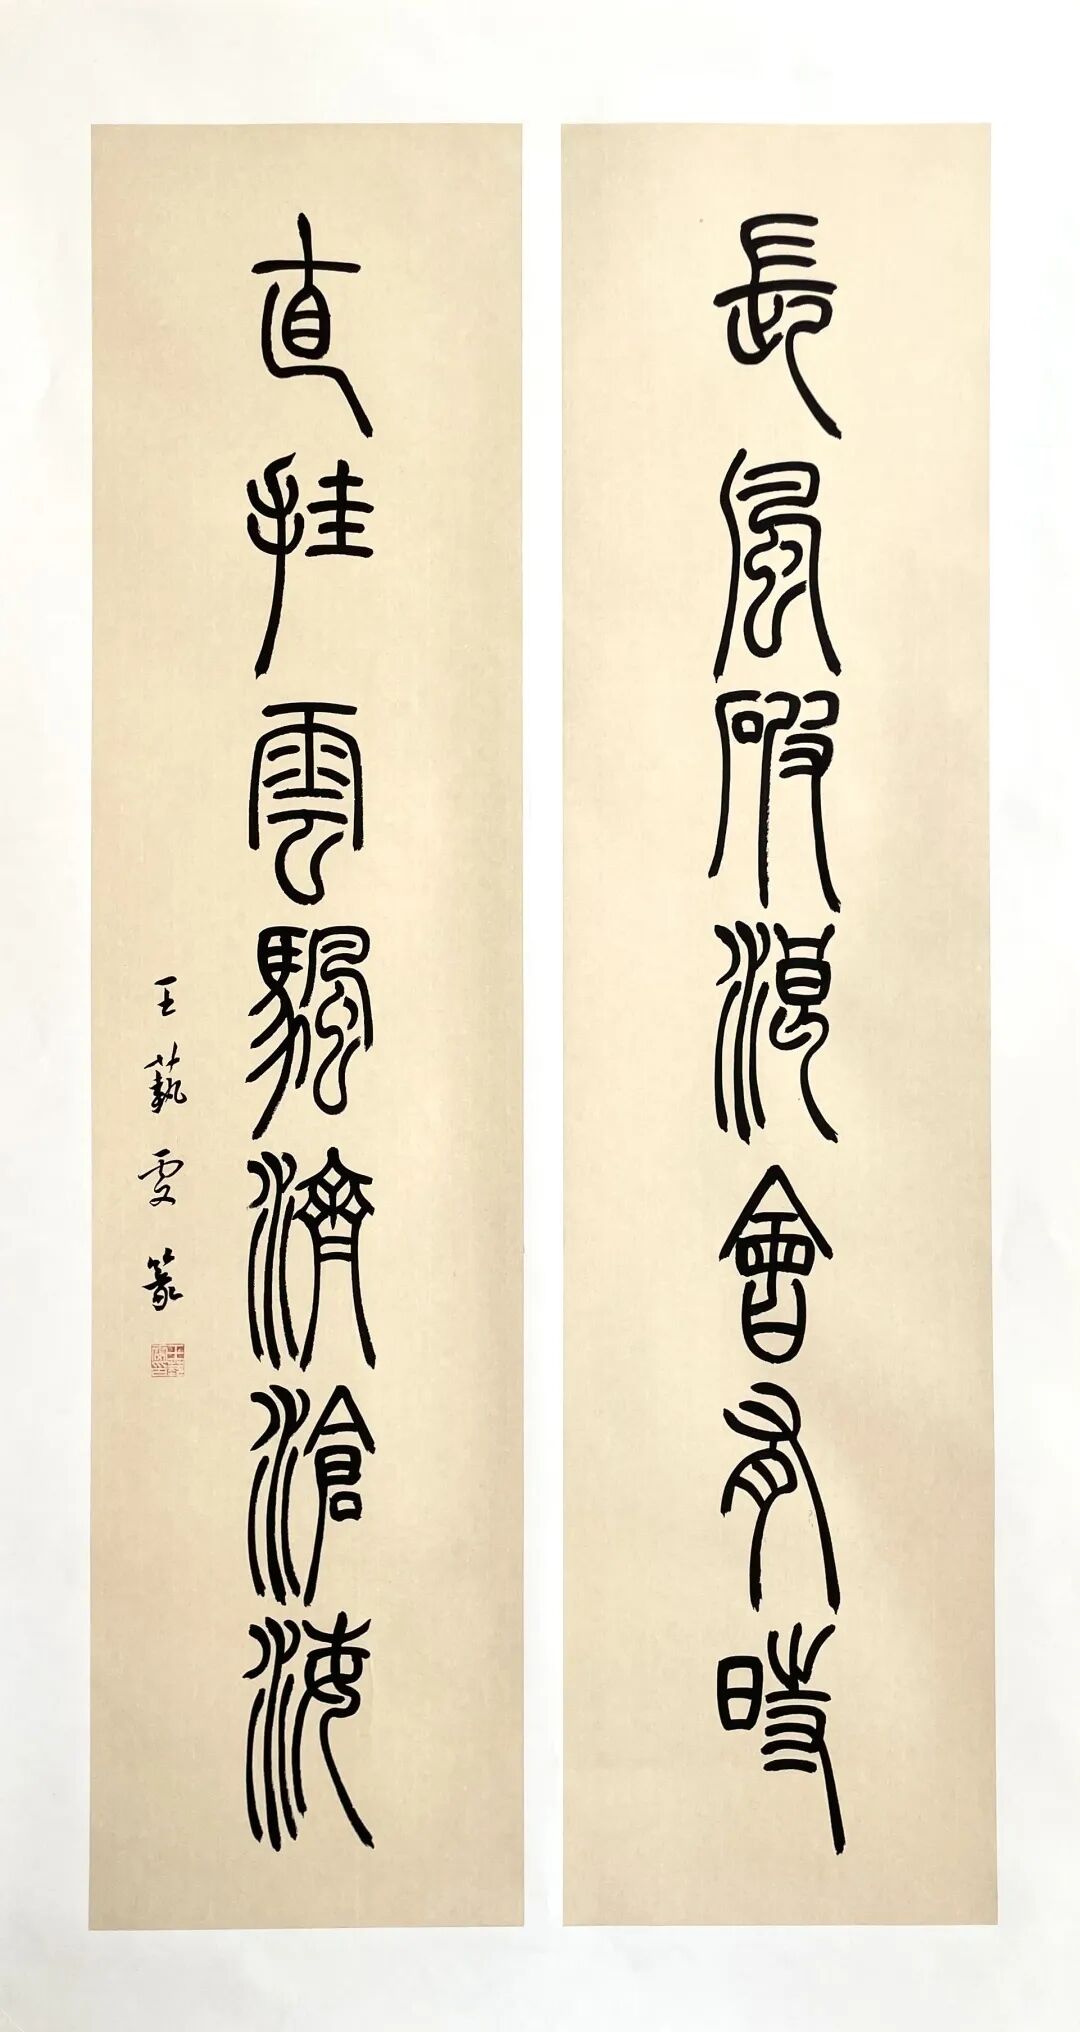 長風破浪會有時
直挂雲颿濟滄海
王藝雯篆